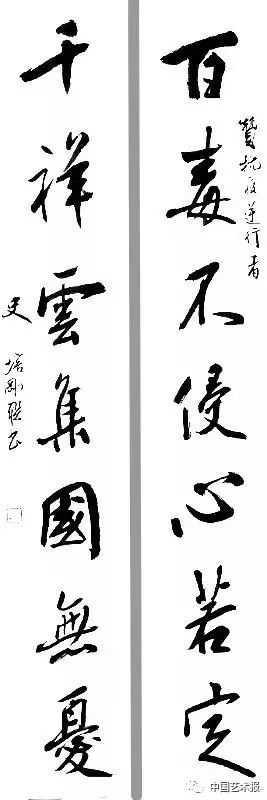 百毒不侵心若定
赞抗疫逆行者
千祥雲集國無憂
史培刚联书
中国艺术报